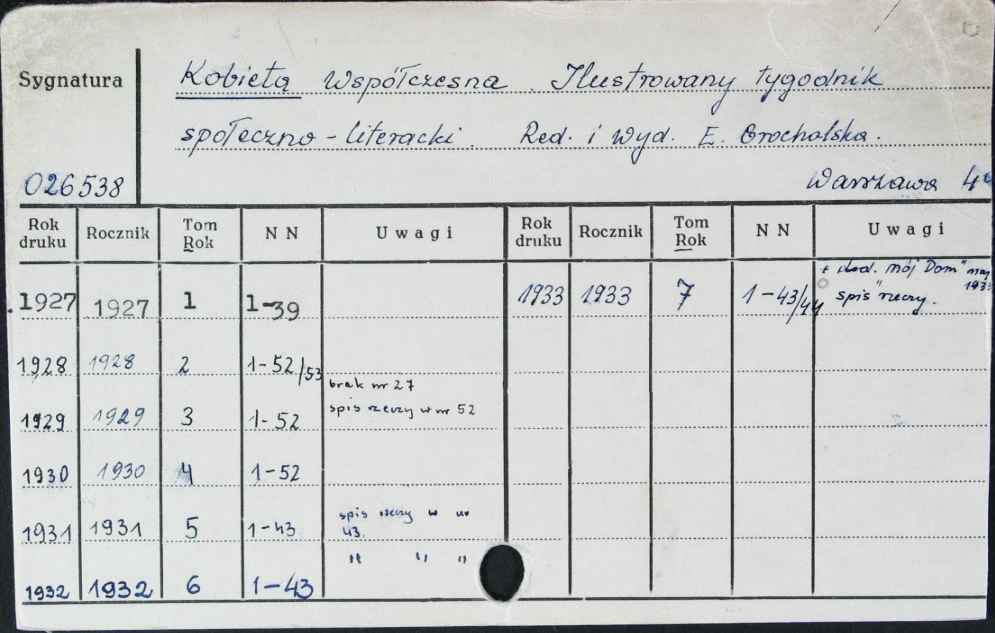 Sygnatura
Kobieta Współczesna. Ilustrowany tygodnik
społeczno-literacki. Red. i wyd. E. Grocholska.
026538
Warszawa 4°
Rok druku Rocznik Tom Rok NN Uwagi Rok druku Rocznik Tom Rok NN Uwagi
1927 1927 1 1-39 1933 1933 7 1-43/44 + dod. Mój Dom" maj 1933 spis rzeczy.
1928 1928 2 1-52/53
brak nr 27
1929 1929 3 1-52 spis rzeczy w nr 52
1930 1930 4 1-52
1931 1931 5 1-43 spis rzeczy w nr 43.
1932 1932 6 1-43 " " "